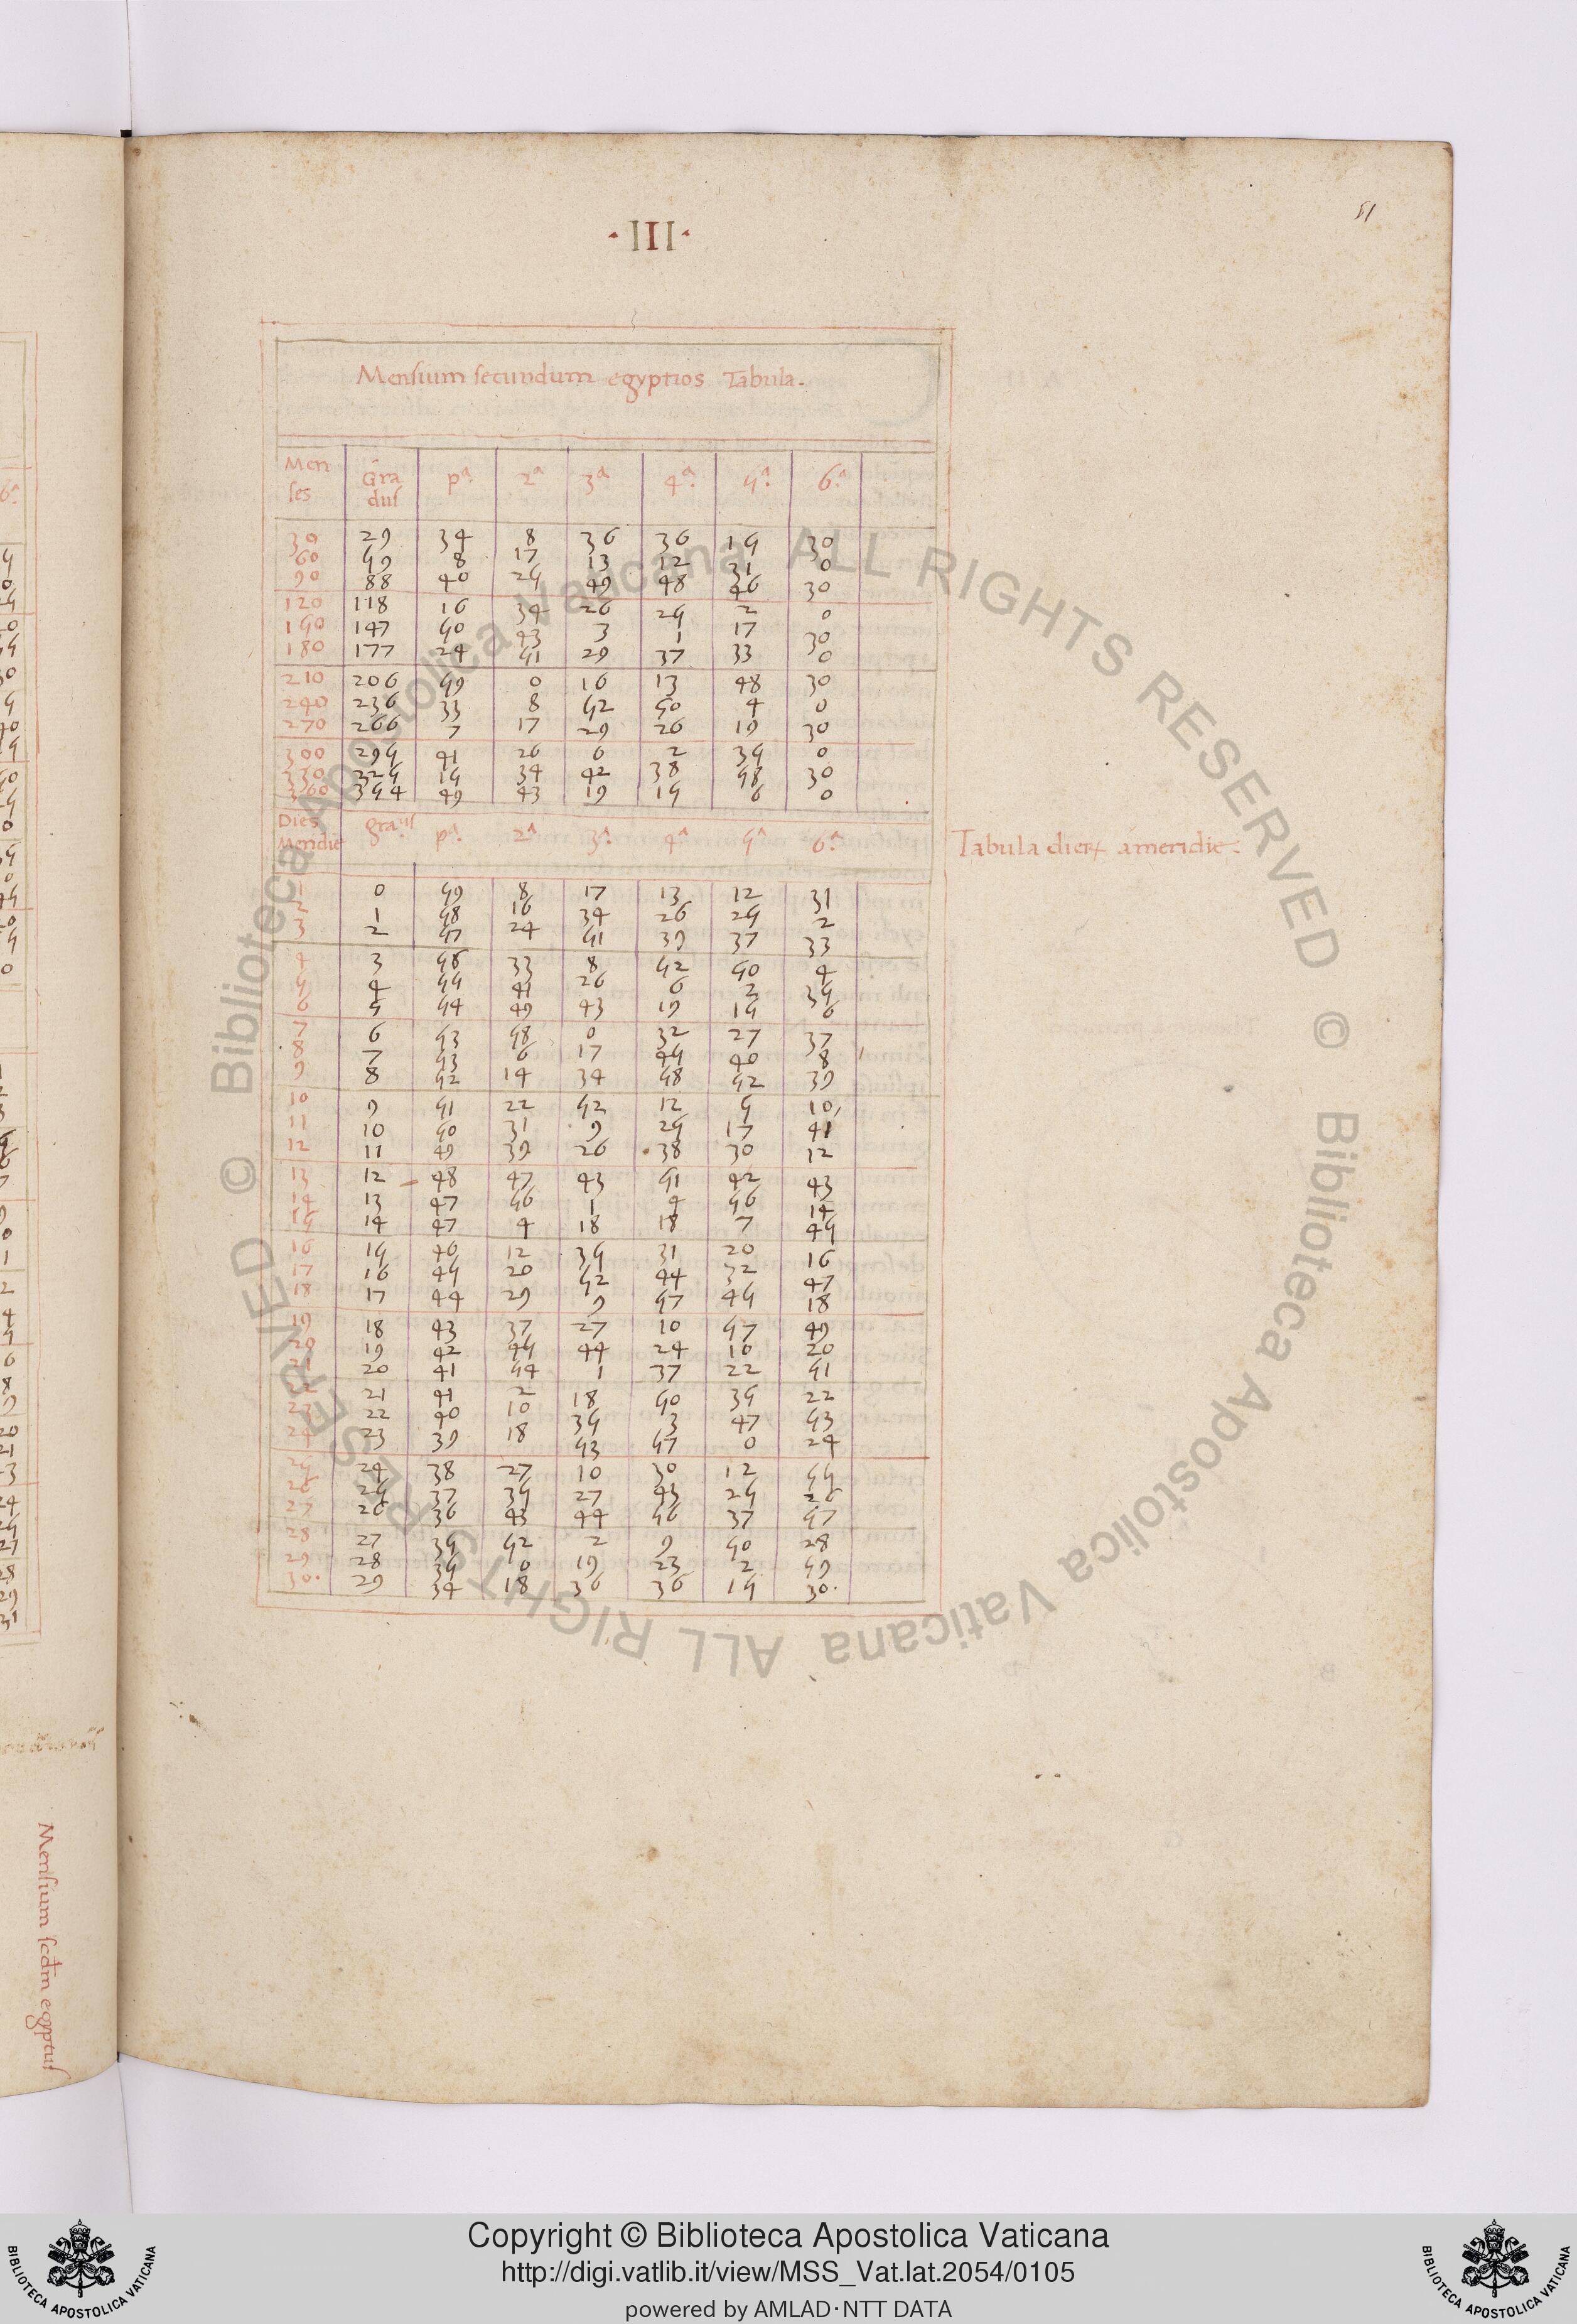 ·III·
51
Mensium secundum egyptios Tabula.
Menses Gradus pª. 2ª 3ª 4ª. 5ª. 6ª.
30 29 34 8 36 36 15 30
60 59 8 17 13 12 31 0
90 88 40 25 49 48 46 30
120 118 16 34 26 25 2 0
150 147 50 43 3 1 17 30
180 177 24 51 29 37 33 0
210 206 59 0 16 13 48 30
240 236 33 8 52 50 4 0
270 266 7 17 29 26 19 30
300 295 41 26 6 2 35 0
330 325 15 34 42 38 58 30
360 354 49 43 19 15 6 0
Dies Meridie gra.us pª. 2ª 3ª. 4ª 5ª 6ª.
Tabula dierꝝ ameridie.
1 0 59 8 17 13 12 31
2 1 58 16 34 26 25 2
3 2 57 24 51 39 37 33
4 3 56 33 8 52 50 4
5 4 55 41 26 6 2 35
6 5 54 49 43 19 15 6
7 6 53 58 0 32 27 37
8 7 53 6 17 45 40 8
9 8 52 14 34 58 52 39
10 9 51 22 52 12 5 10
11 10 50 31 9 25 17 41
12 11 49 39 26 38 30 12
13 12 48 47 43 51 42 43
14 13 47 56 1 4 56 14
15 14 47 4 18 18 7 45
16 15 46 12 35 31 20 16
17 16 45 20 52 44 32 47
18 17 44 29 9 57 45 18
19 18 43 37 27 10 57 49
20 19 42 45 44 24 10 20
21 20 41 54 1 37 22 51
22 21 41 2 18 50 35 22
23 22 40 10 35 3 47 53
24 23 39 18 53 57 0 24
25 24 38 27 10 30 12 55
26 25 37 35 27 43 25 26
27 26 36 43 44 56 37 57
28 27 35 52 2 9 50 28
29 28 35 0 19 23 2 59
30. 29 34 18 36 36 15 30.
Mensium scdm egyptus
© Biblioteca Apostolica Vaticana ALL RIGHTS RESERVED © Biblioteca Apostolica Vaticana ALL RIGHTS RESERVED
BIBLIOTECA APOSTOLICA VATICANA
Copyright © Biblioteca Apostolica Vaticana
http://digi.vatlib.it/view/MSS_Vat.lat.2054/0105
powered by AMLAD·NTT DATA
BIBLIOTECA APOSTOLICA VATICANA